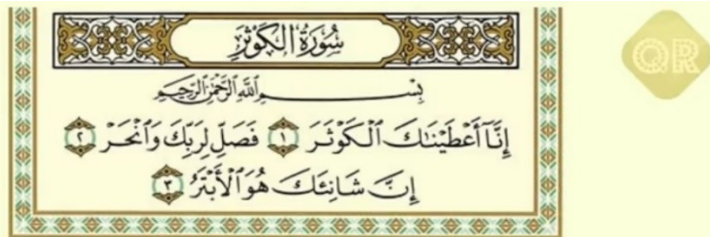 سُورَةُ الكَوْثَرِ
QR
بِسْمِ ٱللَّهِ ٱلرَّحْمَٰنِ ٱلرَّحِيمِ
إِنَّآ أَعْطَيْنَٰكَ ٱلْكَوْثَرَ ١ فَصَلِّ لِرَبِّكَ وَٱنْحَرْ ٢
إِنَّ شَانِئَكَ هُوَ ٱلْأَبْتَرُ ٣